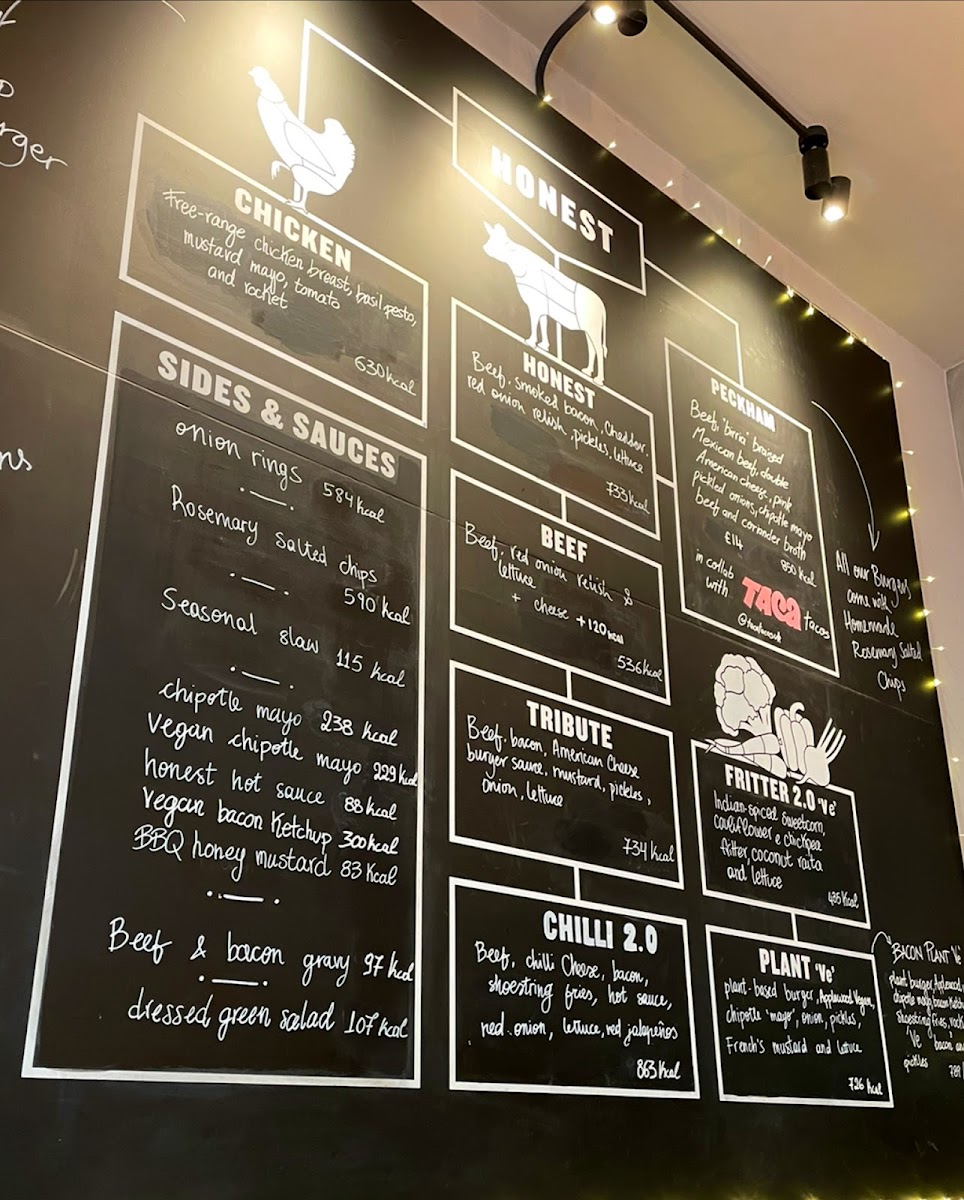 urger
ns
HONEST
CHICKEN
Free-range chicken breast, basil pesto,
mustard mayo, tomato
and rocket
630 kcal
SIDES & SAUCES
onion rings 584 kcal
Rosemary salted chips
590 kcal
Seasonal slaw 115 kcal
chipotle mayo 238 kcal
Vegan chipotle mayo 229 kcal
honest hot sauce 88 kcal
Vegan bacon Ketchup 300 kcal
BBQ honey mustard 83 Kcal
Beef & bacon gravy 97 kcal
dressed green salad 107 kcal
HONEST
Beef, smoked bacon, Cheddar,
red onion relish, pickles, lettuce
733 kcal
BEEF
Beef, red onion relish &
lettuce
+ cheese +120 kcal
536 kcal
TRIBUTE
Beef, bacon, American Cheese
burger sauce, mustard, pickles,
onion, lettuce
734 kcal
CHILLI 2.0
Beef, chilli Cheese, bacon,
shoestring fries, hot sauce,
red onion, lettuce, red jalapeños
863 kcal
PECKHAM
Beef, 'birria' braized
Mexican beef, double
American cheese, pink
pickled onions, chipotle mayo
beef and coriander broth
£14
850 kcal
in collab
with TACA tacos
All our Burgers
come with
Homemade
Rosemary Salted
Chips
FRITTER 2.0 'Ve'
Indian-spiced sweetcorn,
cauliflower & chickpea
fritter, coconut raita
and lettuce
485 kcal
PLANT 'Ve'
plant-based burger, Applewood Vegan,
chipotle 'mayo', onion, pickles,
French's mustard and lettuce
726 kcal
BACON PLANT 'Ve'
plant burger, Applewood
chipotle mayo, bacon Ketch
shoestring fries, rock
'Ve' bacon an
pickles 789 k